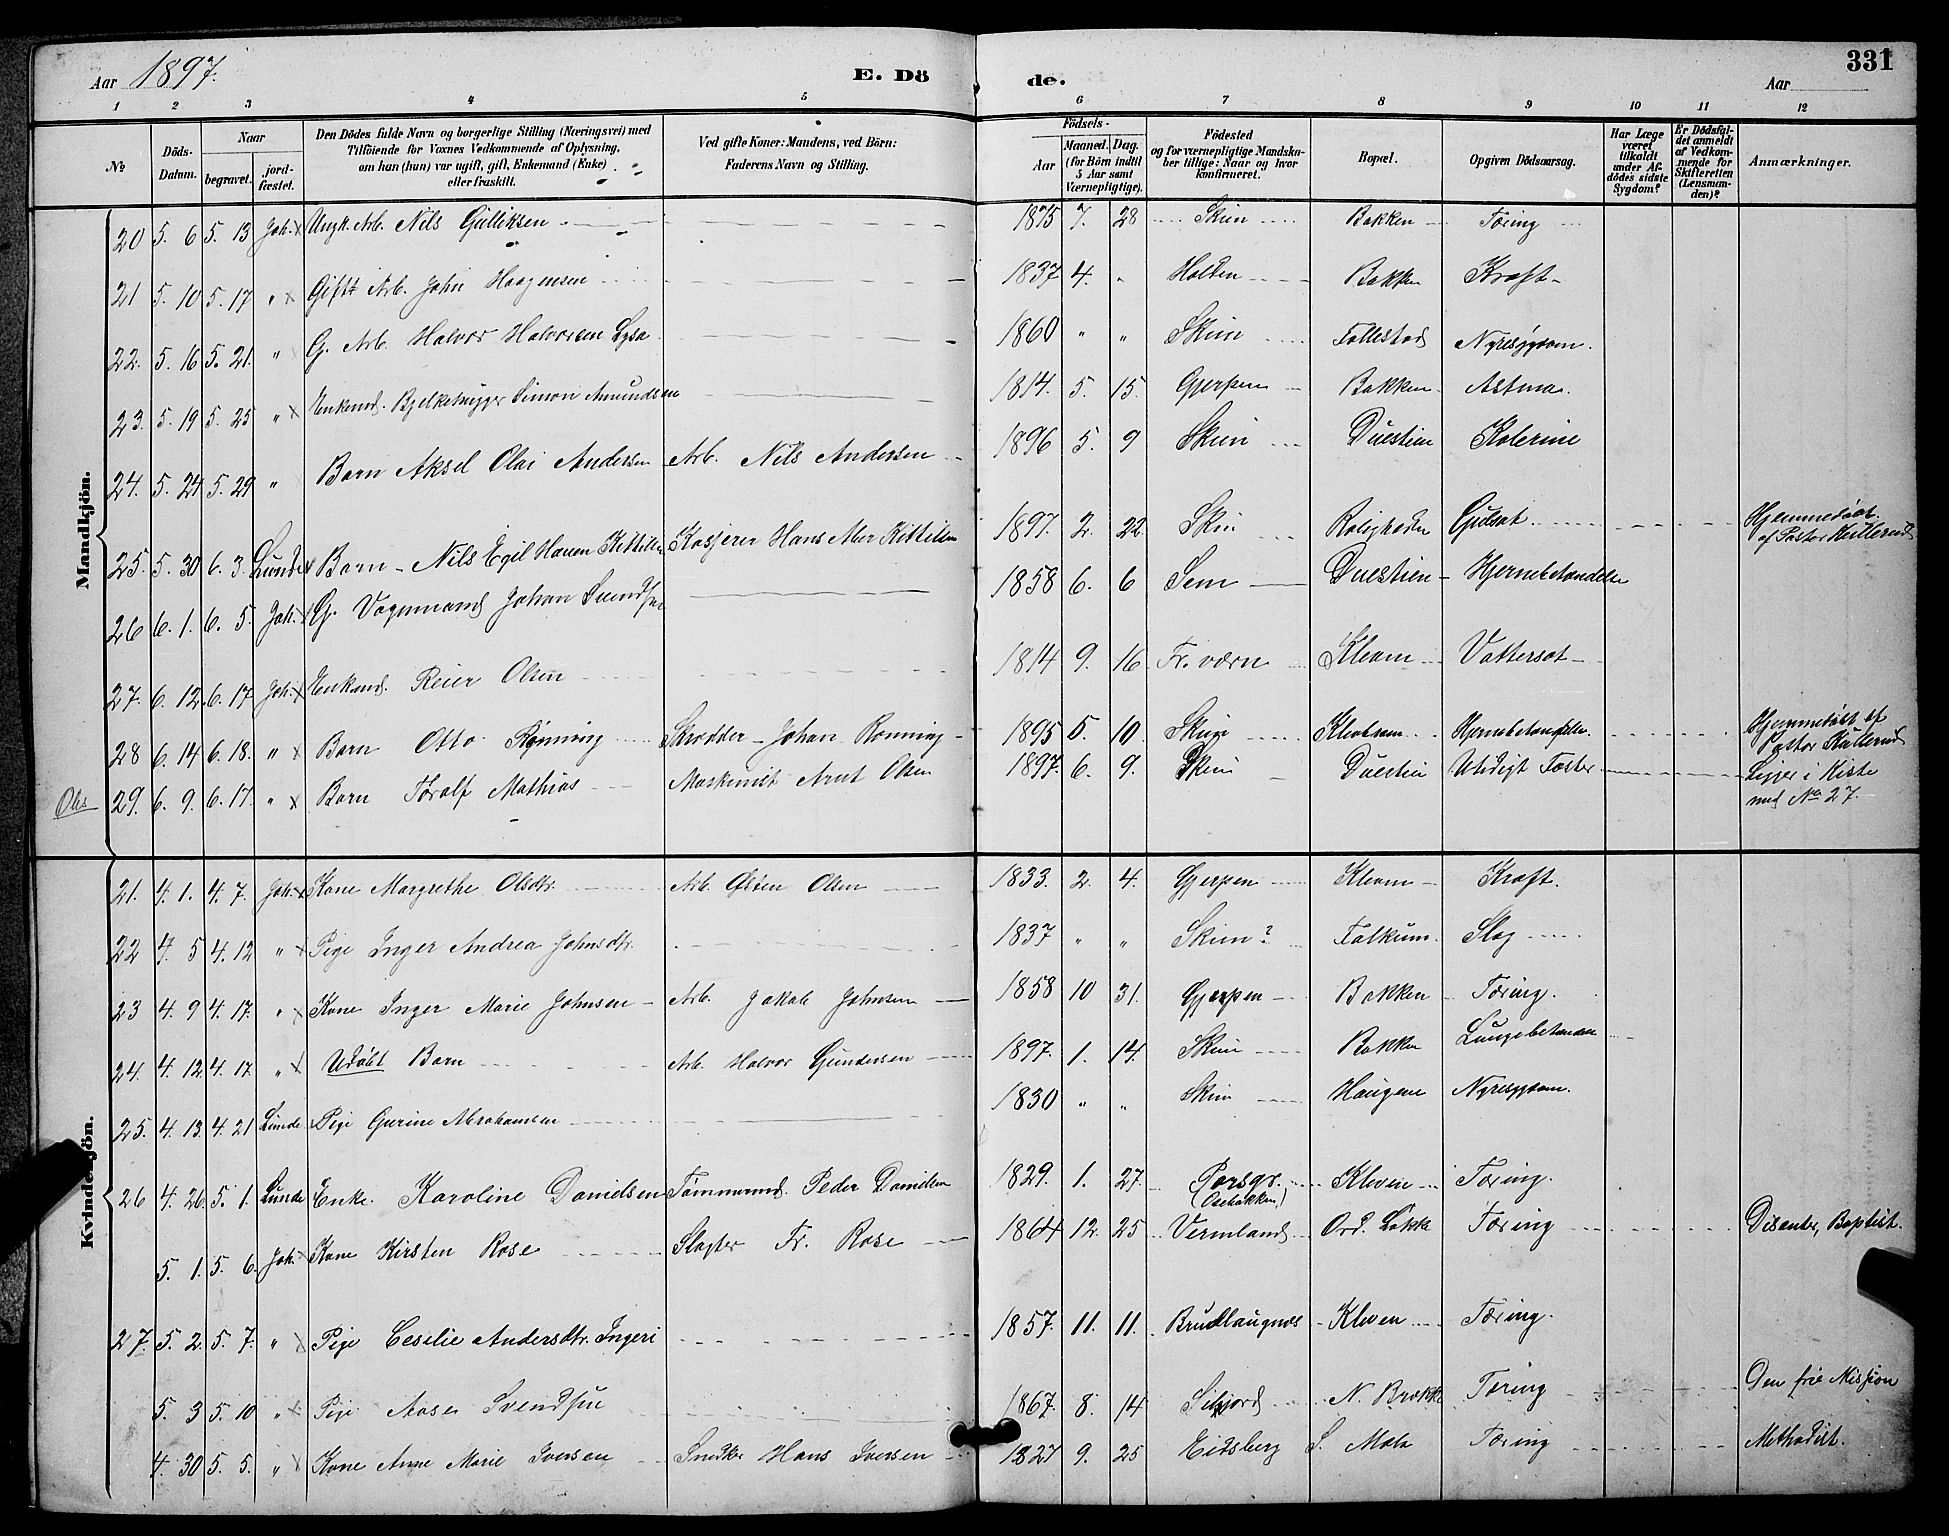 Aar 1897. E. Dö de. Aar 331
1 2 3 4 5 6 7 8 9 10 11 12
No
Döds-Datum.
Naar begravet. jord-fæstet.
Den Dödes fulde Navn og borgerlige Stilling (Næringsvei) med
Tilföiende for Voxnes Vedkommende af Oplysning,
om han (hun) var ugift, gift, Enkemand (Enke)
eller fraskilt.
Ved gifte Koner: Mandens, ved Börn:
Faderens Navn og Stilling.
Födsels-
Aar Maaned. Dag.
(for Börn indtil 5 Aar samt Værnepligtige).
Födested
og for værnepligtige Mandskaber tillige: Naar og hvor konfirmeret.
Bopæl.
Opgiven Dödsaarsag.
Har Læge været tilkaldt under Afdödes sidste Sygdom?
Er Dödsfaldet anmeldt af Vedkommende for Skifteretten (Lensmanden)?
Anmærkninger.
Mandkjön.
20 5. 6 5. 13 Joh. x Ungk. Arb. Nils Gulliksen 1875 7. 28 Skien Bakken Tæring
21 5. 10 5. 17 " x Gift Arb. John Haagensen 1837 4. " Holden Bakken Kræft
22. 5. 16 5. 21. " G. Arb. Halvor Halvorsen Lysa 1860 " " Skien Follestad Nyresygdom.
23. 5. 19 5. 25 " x Enkemd. Bjelkehugger Simon Amundsen 1814. 5. 15. Gjerpen Bakken Astma.
24. 5. 24 5. 29 " Barn Aksel Olai Andersen Arb. Nils Andersen 1896 5. 9 Skien Duestien Kolerine
25. 5. 30 6. 3. Lunde x Barn Nils Egil Hauen Kittilsen Kasjerer Hans Kittilsen 1897. 2. 22 Skien Roligheden Gulsot Hjemmedöbt af Pastor Kullerud
26 6. 1. 6. 5. Joh. G. Vognmand Johan Svendsen 1858 6. 6 Sem Duestien Hjernebetændelse
27. 6. 12. 6. 17 Joh. x Enkemd. Reier Olsen 1814 9. 16 Fr. værn Kleven Vattersot
28 6. 14 6. 18. " x Barn Otto Rönning Skrædder Johan Rönning 1895 5. 10 Skien Hjernebetændelse. Hjemmedöbt af Pastor Kullerud
Obs 29. 6. 9. 6. 17. " x Barn Toralf Mathias Maskinist Arnt Olsen 1897. 6. 9. Skien Duestien Utidigt Foster Ligger i Kiste med No 27.
Kvindekjön.
21. 4. 1. 4. 7. Joh. x Kone Margrethe Olsdtr. Arb. Östen Olsen 1833. 2. 4. Gjerpen Kleven Kræft.
22 4. 5 4. 12 " x Pige Inger Andrea Johnsdtr. 1837 " " Skien? Falkum. Slag
23 4. 9 4. 17. " x Kone Inger Marie Johnsen Arb. Jakob Johnsen 1858 10 31. Gjerpen Bakken Tæring.
24. 4. 12 4. 17. " x Udöbt Barn Arb. Halvor Gundersen 1897. 1. 14. Skien Bakken Lungebetændelse
25. 4. 13. 4. 21 Lunde Pige Gurine Abrahamsen 1830 " " Skien Haugen Nyresygdom.
26 4. 26. 5. 1. Lunde Enke. Karoline Danielsen Tömmermd. Peder Danielsen 1829. 1. 27. Porsgr. (Osebakken) Kleven Tæring.
5. 1. 5. 6. Joh. x Kone Kirsten Rose Slagter Fr. Rose 1864 12. 25 Vermland Tæring Disenter, Baptist.
27. 5. 2. 5. 7. " x Pige Cesilie Andersdtr. Ingeri 1857. 11. 11. Kleven Tæring.
5. 3 5. 10 " x Pige Aase Svendsen 1867. 8. 14 N. Brekke Tæring Den frie Mission
4. 30 5. 5. " x Kone Anne Marie Iversen Snedker Hans Iversen 1827 9. 25 Eidsberg Tæring Methodist.